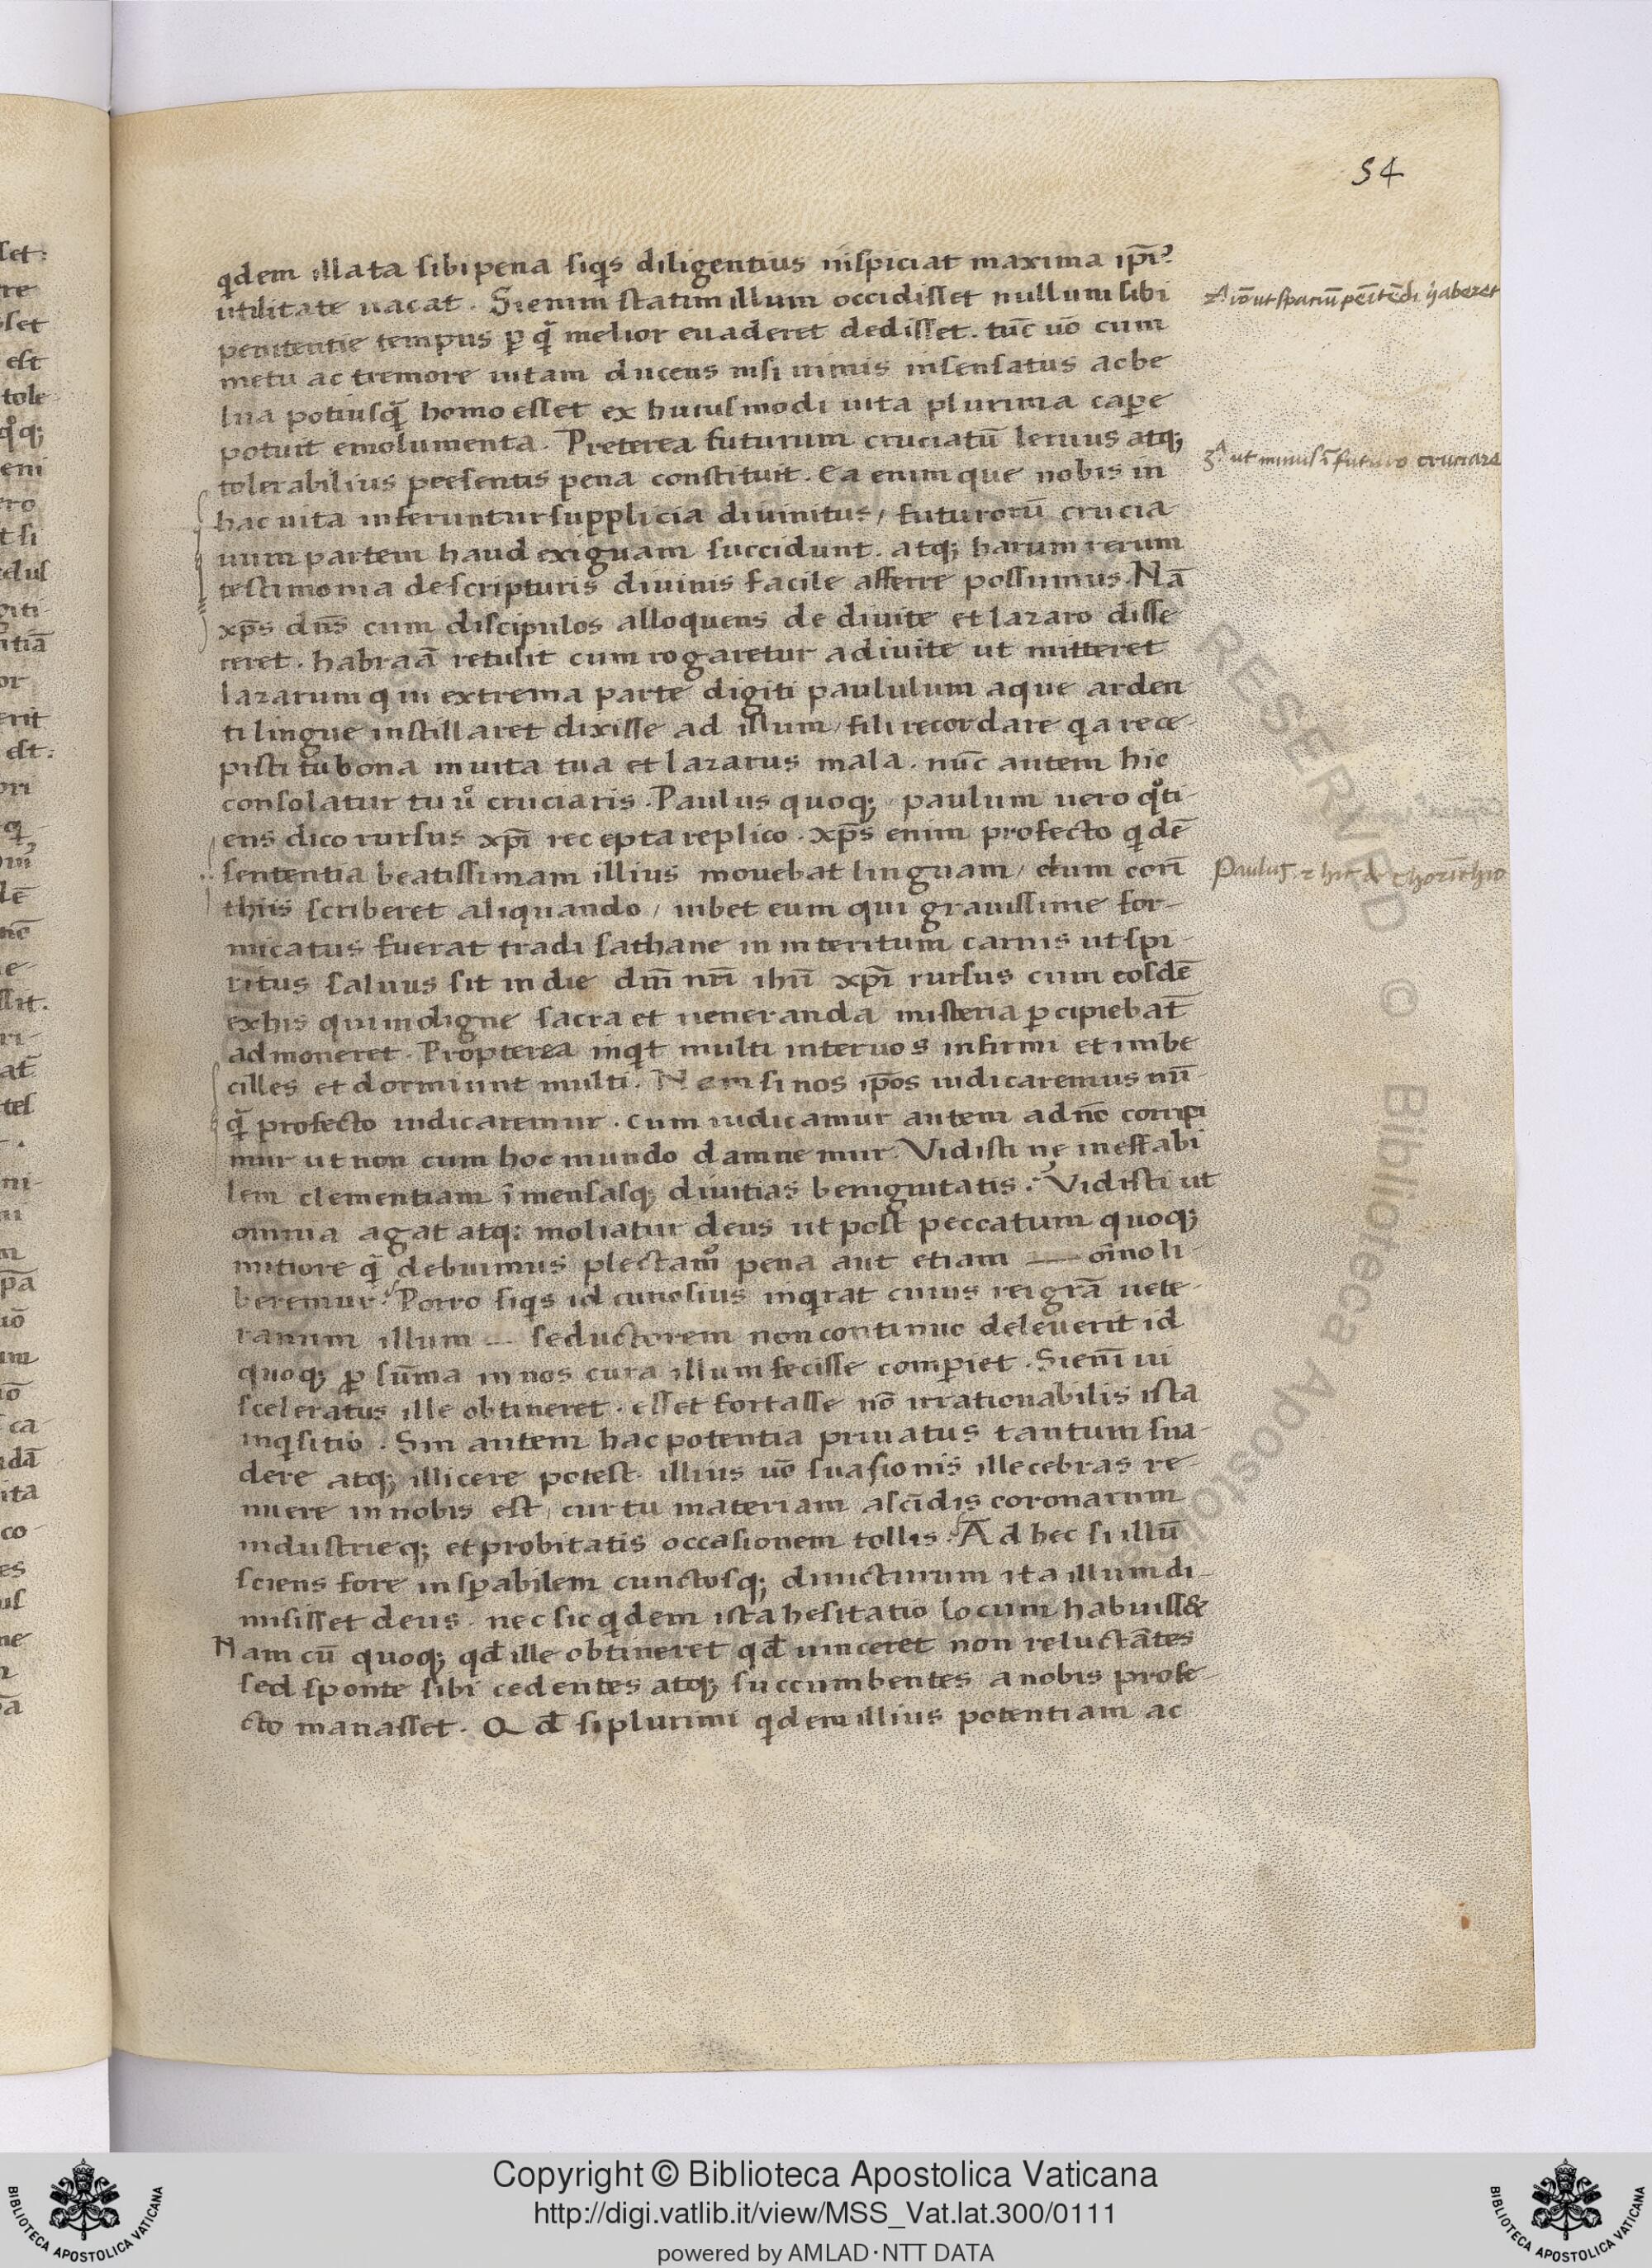 54
q̇dem illata sibi pena siq̇s diligentius inspiciat maxima ip̄i⁹
utilitate uacat. Si enim statim illum occidisset nullum sibi
2ª iō ut spaciū penitēdi haberet
penitentie tempus p̱ q̄ melior euaderet dedisset. tūc uō cum
metu ac tremore uitam ducens nisi nimis insensatus ac be
lua potiusq̄ homo esset ex huiusmodi uita plurima cap̱e
potuit emolumenta. Preterea futurum cruciatū leuius atq;
3ª ut minus ī futuro cruciare
tolerabilius presentis pena constituit. Ea enim que nobis in
hac uita inferuntur supplicia diuinitus, futurorū crucia
uum partem haud exiguam succidunt. atq; harum rerum
testimonia de scripturis diuinis facile afferre possumus. Nā
xp̄s dn̄s cum discipulos alloquens de diuite et lazaro disse
reret. habraā retulit cum rogaretur a diuite ut mitteret
lazarum q in extrema parte digiti paululum aque arden
ti lingue instillaret dixisse ad illum, fili recordare q̇a rece-
pisti tu bona in uita tua et lazarus mala. nūc autem hic
consolatur tu u̇ cruciaris. Paulus quoq; paulum uero q̊ti-
ens dico rursus xp̄i recepta replico. xp̄s enim profecto q̇dē
sententia beatissimam illius mouebat linguam, dum corī
Paulus. 2 hic ad chorīthio
thiis scriberet aliquando, iubet eum qui grauissime for-
nicatus fuerat tradi sathane in interitum carnis ut spi-
ritus saluus sit in die dn̄i nr̄i ihū xp̄i rursus cum eosdē
ex his qui indigne sacra et ueneranda misteria p̱cipiebāt
admoneret. Propterea inq̇t multi inter uos infirmi et imbe
cilles et dormiunt multi. Nam si nos ip̄os iudicaremus nū-
q̄ profecto iudicaremur. cum iudicamur autem a dn̄o corripi
mur ut non cum hoc mundo damnemur. Vidisti ne ineffabi
lem clementiam īmensasq; diuitias benignitatis? Vidisti ut
omnia agat atq; moliatur deus ut post peccatum quoq;
mitiore q̄ debuimus plectam̊ pena aut etiam — oīno li-
beremur? Porro siq̇s id curiosius inq̇rat cuius rei grā uete-
ranum illum — seductorem non continuo deleuerit id
quoq; p̱ sūma in nos cura illum fecisse comp̱iet. Si enī ui
sceleratus ille obtineret. esset fortasse nō irrationabilis ista
inq̇sitio. Sin autem hac potentia priuatus tantum sua-
dere atq; illicere potest. illius uō suasionis illecebras re-
nuere in nobis est, cur tu materiam ascīdis coronarum
industrieq; et probitatis occasionem tollis? Ad hec si illū
sciens fore insp̱abilem cunctosq; deuicturum ita illum di-
misisset deus. nec sic q̇dem ista hesitatio locum habuiss&
Nam cū quoq; qd̄ ille obtineret qd̄ uinceret non reluctātes
sed sponte sibi cedentes atq; succumbentes a nobis profe-
cto manasset. Qd̄ si plurimi q̇dem illius potentiam ac
RESERVED © Biblioteca Apostolica
Copyright © Biblioteca Apostolica Vaticana
http://digi.vatlib.it/view/MSS_Vat.lat.300/0111
powered by AMLAD·NTT DATA
BIBLIOTECA APOSTOLICA VATICANA
BIBLIOTECA APOSTOLICA VATICANA